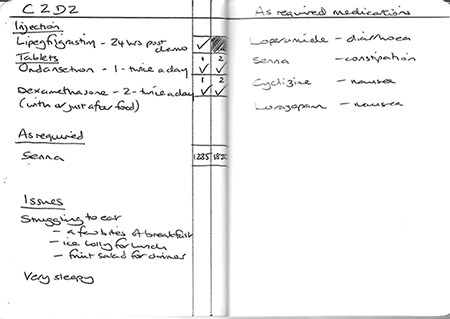 C2D2
Injection
Lipegfilgrastim - 24hrs post
chemo ✓
Tablets 1 2
Ondansetron - 1 - twice a day ✓ ✓
1 2
Dexamethasone - 2 - twice a day ✓ ✓
(with or just after food)
As required
Senna
Issues
Struggling to eat
- a few bites of breakfast
- ice lolly for lunch
- fruit salad for dinner
Very sleepy
As required medications
Loperamide - diarrhoea
Senna - constipation
Cyclizine - nausea
Lorazepam - nausea